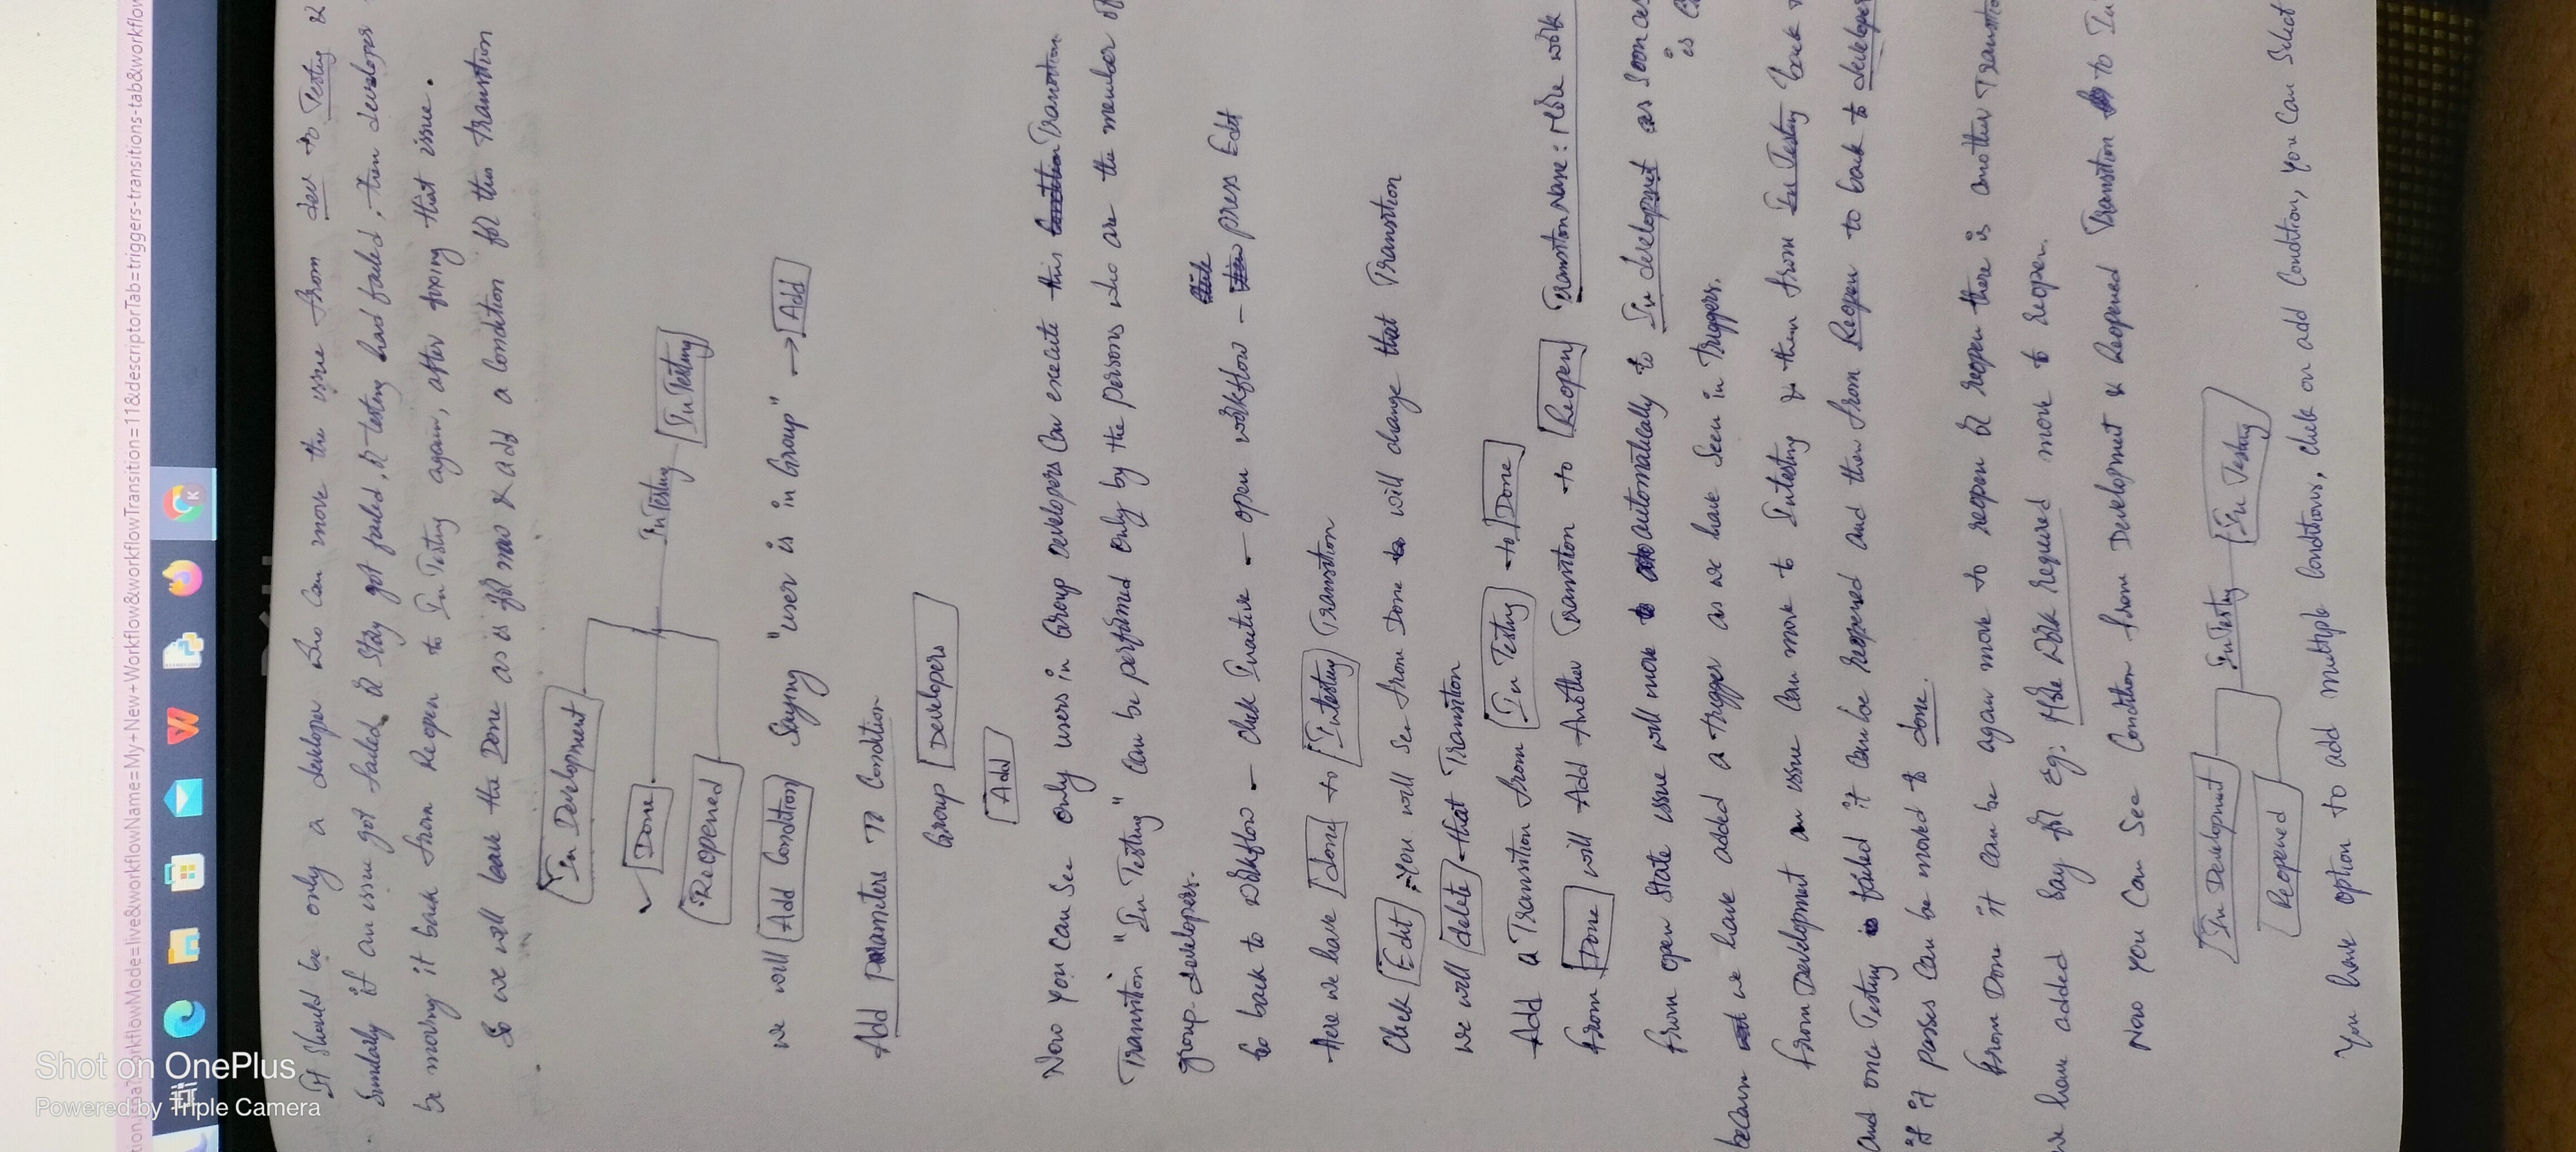 Shot on OnePlus
Powered by Triple Camera
workflowMode=live&workflowName=My+New+Workflow&workflowTransition=11&descriptorTab=triggers-transitions-tab&workflow
It Should be only a developer who can move the issue from dev to Testing &
Similarly if an issue got failed or Story got failed, or testing had failed, then developer
be moving it back from Reopen to In Testing again, after fixing that issue.
So we will leave the Done as is for now & add a Condition for this transition
In Development
Done
In Testing
In Testing
Reopened
we will Add Condition Saying "user is in Group" → Add
Add parameters To Condition
Group Developers
Add
Now you can see only users in Group Developers Can execute this Condition Transition
Transition "In Testing" can be performed only by the persons who are the member of
group developers.
Go back to workflow - click Inactive - open workflow - press Edit
Here we have done to Intesting Transition
Click Edit, you will see from Done will change that Transition
we will delete that Transition
Add a Transition from In Testing to Done
From Done will Add Another Transition to Reopen Transition Name: More work
From open State issue will move to automatically to In development as soon as
is
because we have added a trigger as we have Seen in Triggers.
From Development an issue Can move to Intesting & then from In Testing back
and once Testing is failed it can be reopened and then from Reopen to back to develope
if it passes can be moved to done.
From Done it can be again move to reopen or reopen there is another Transitio
we have added Say for Eg: More Work required move to reopen.
Now you Can See Condition from Development & Reopened Transition to In
In Development
In Testing
In Testing
Reopened
You have option to add multiple Conditions, click on add Condition, you can Select